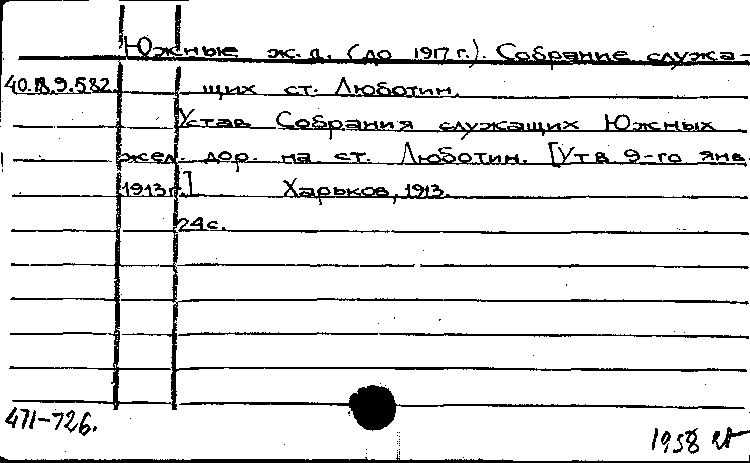 Южные ж.д. (до 1917 г.). Собрание служа-
40.18.9.582. щих ст. Люботин.
Устав Собрания служащих Южных
жел. дор. на ст. Люботин. [Утв 9-го янв
1913 г.] Харьков, 1913.
24 с.
471-726.
1958